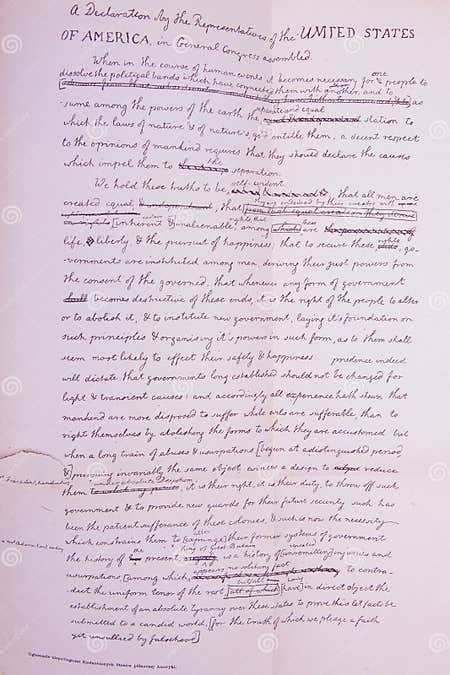 A Declaration by the Representatives of the UNITED STATES
OF AMERICA, in General Congress assembled.
When in the course of human events it becomes necessary for one people to
dissolve the political bands which have connected them with another, and to as
-sume among the powers of the earth the separate and equal station to
which the laws of nature & of nature's god entitle them, a decent respect
to the opinions of mankind requires that they should declare the causes
which impel them to the separation.
We hold these truths to be self-evident that all men are
created equal that they are endowed by their creator with
certain [inherent &] inalienable rights that among these are
life, liberty, & the pursuit of happiness; that to secure these rights, go-
-vernments are instituted among men, deriving their just powers from
the consent of the governed, that whenever any form of government
becomes destructive of these ends, it is the right of the people to alter
or to abolish it, & to institute new government, laying it's foundation on
such principles & organising it's powers in such form, as to them shall
seem most likely to effect their safety & happiness. prudence indeed
will dictate that governments long established should not be changed for
light & transient causes: and accordingly all experience hath shewn that
mankind are more disposed to suffer while evils are sufferable, than to
right themselves by abolishing the forms to which they are accustomed. but
when a long train of abuses & usurpations [begun at a distinguished period
&] pursuing invariably the same object, evinces a design to reduce
them under absolute Despotism it is their right, it is their duty, to throw off such
government & to provide new guards for their future security. such has
been the patient sufferance of these colonies, & such is now the necessity
which constrains them to [expunge] their former systems of government
the history of the present king of Great Britain is a history of [unremitting] injuries and
usurpations [among which appears no solitary fact to contra-
-dict the uniform tenor of the rest [have] in direct object the
establishment of an absolute tyranny over these states. to prove this let facts be
submitted to a candid world, [for the truth of which we pledge a faith
yet unsullied by falsehood]
dreamstime